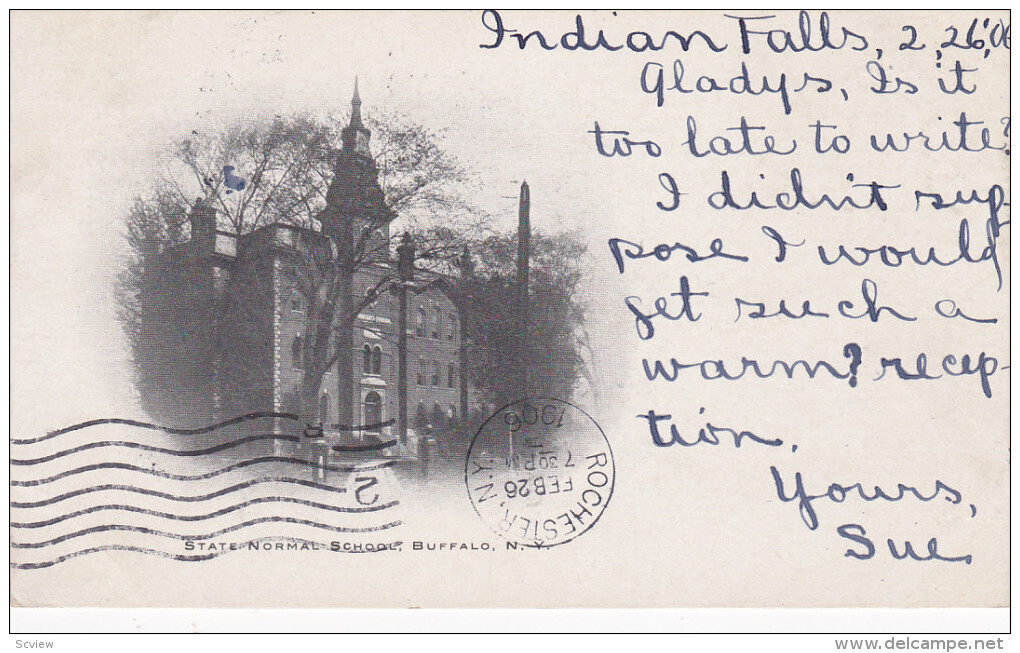 Indian Falls, 2,26,'06
Gladys, Is it
too late to write?
I didn't sup-
pose I would
get such a
warm? recep-
tion.
Yours,
Sue.
ROCHESTER, N.Y.
FEB 26
7 30 PM
1906
2
STATE NORMAL SCHOOL, BUFFALO, N. Y.
Scview
www.delcampe.net